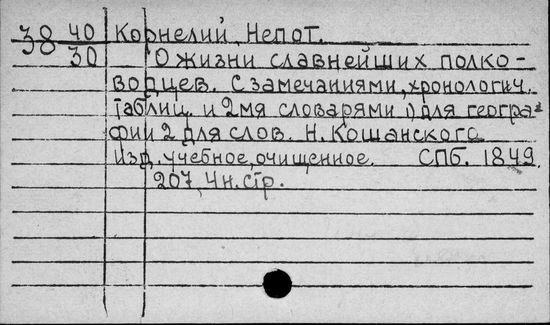 38 40 Корнелий, Непот.
38 30 О жизни славнейших полко-
водцев. С замечаниями, хронологич.
таблиц. и 2мя словарями 1) для геогра-
фии 2 для слов. Н. Кошанского
Изд. учебное, очищенное. СПб. 1849.
207, 4н. стр.